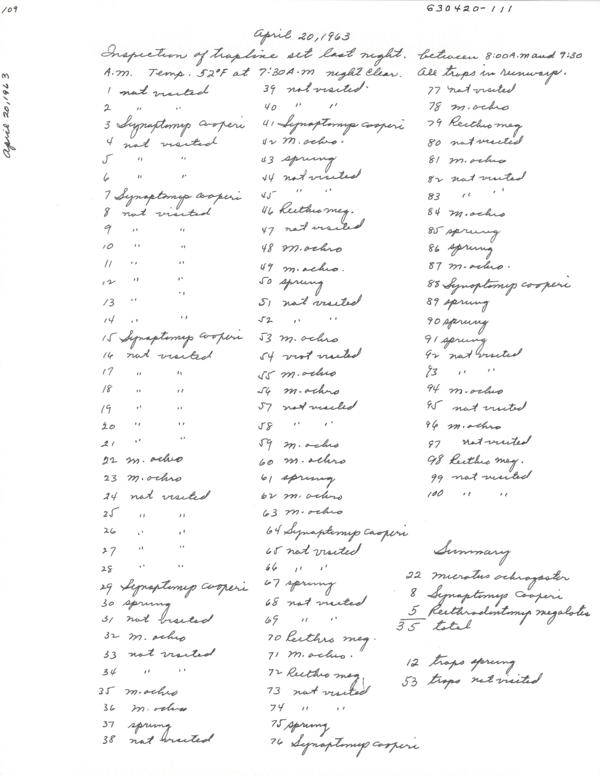 109
630420-111
April 20, 1963
April 20, 1963
Inspection of trapline set last night. between 8:00A.M and 9:30
A.M. Temp. 52°F at 7:30A.M night clear. All traps in runways.
1 not visited
2 " "
3 Synaptomys cooperi
4 not visited
5 " "
6 " "
7 Synaptomys cooperi
8 not visited
9 " "
10 " "
11 " "
12 " "
13 " "
14 " "
15 Synaptomys cooperi
16 not visited
17 " "
18 " "
19 " "
20 " "
21 " "
22 m. ochro
23 m. ochro
24 not visited
25 " "
26 " "
27 " "
28 " "
29 Synaptomys cooperi
30 sprung
31 not visited
32 m. ochro
33 not visited
34 " "
35 m. ochro
36 m. ochro
37 sprung
38 not visited
39 not visited.
40 " "
41 Synaptomys cooperi
42 m. ochro.
43 sprung
44 not visited
45 " "
46 Reithro meg.
47 not visited
48 m. ochro
49 m. ochro.
50 sprung
51 not visited
52 " "
53 m. ochro
54 not visited
55 m. ochro
56 m. ochro
57 not visited
58 " "
59 m. ochro
60 m. ochro
61 sprung
62 m. ochro
63 m. ochro
64 Synaptomys cooperi
65 not visited
66 " "
67 sprung
68 not visited
69 " "
70 Reithro meg.
71 m. ochro.
72 Reithro meg.
73 not visited
74 " "
75 sprung
76 Synaptomys cooperi
77 not visited
78 m. ochro
79 Reithro meg
80 not visited
81 m. ochro
82 not visited
83 " "
84 m. ochro
85 sprung
86 sprung
87 m. ochro.
88 Synaptomys cooperi
89 sprung
90 sprung
91 sprung
92 not visited
93 " "
94 m. ochro
95 not visited
96 m. ochro
97 not visited
98 Reithro meg.
99 not visited
100 " "
Summary
22 microtus ochrogaster
8 Synaptomys cooperi
5 Reithrodontomys megalotis
35 total
12 traps sprung
53 traps not visited